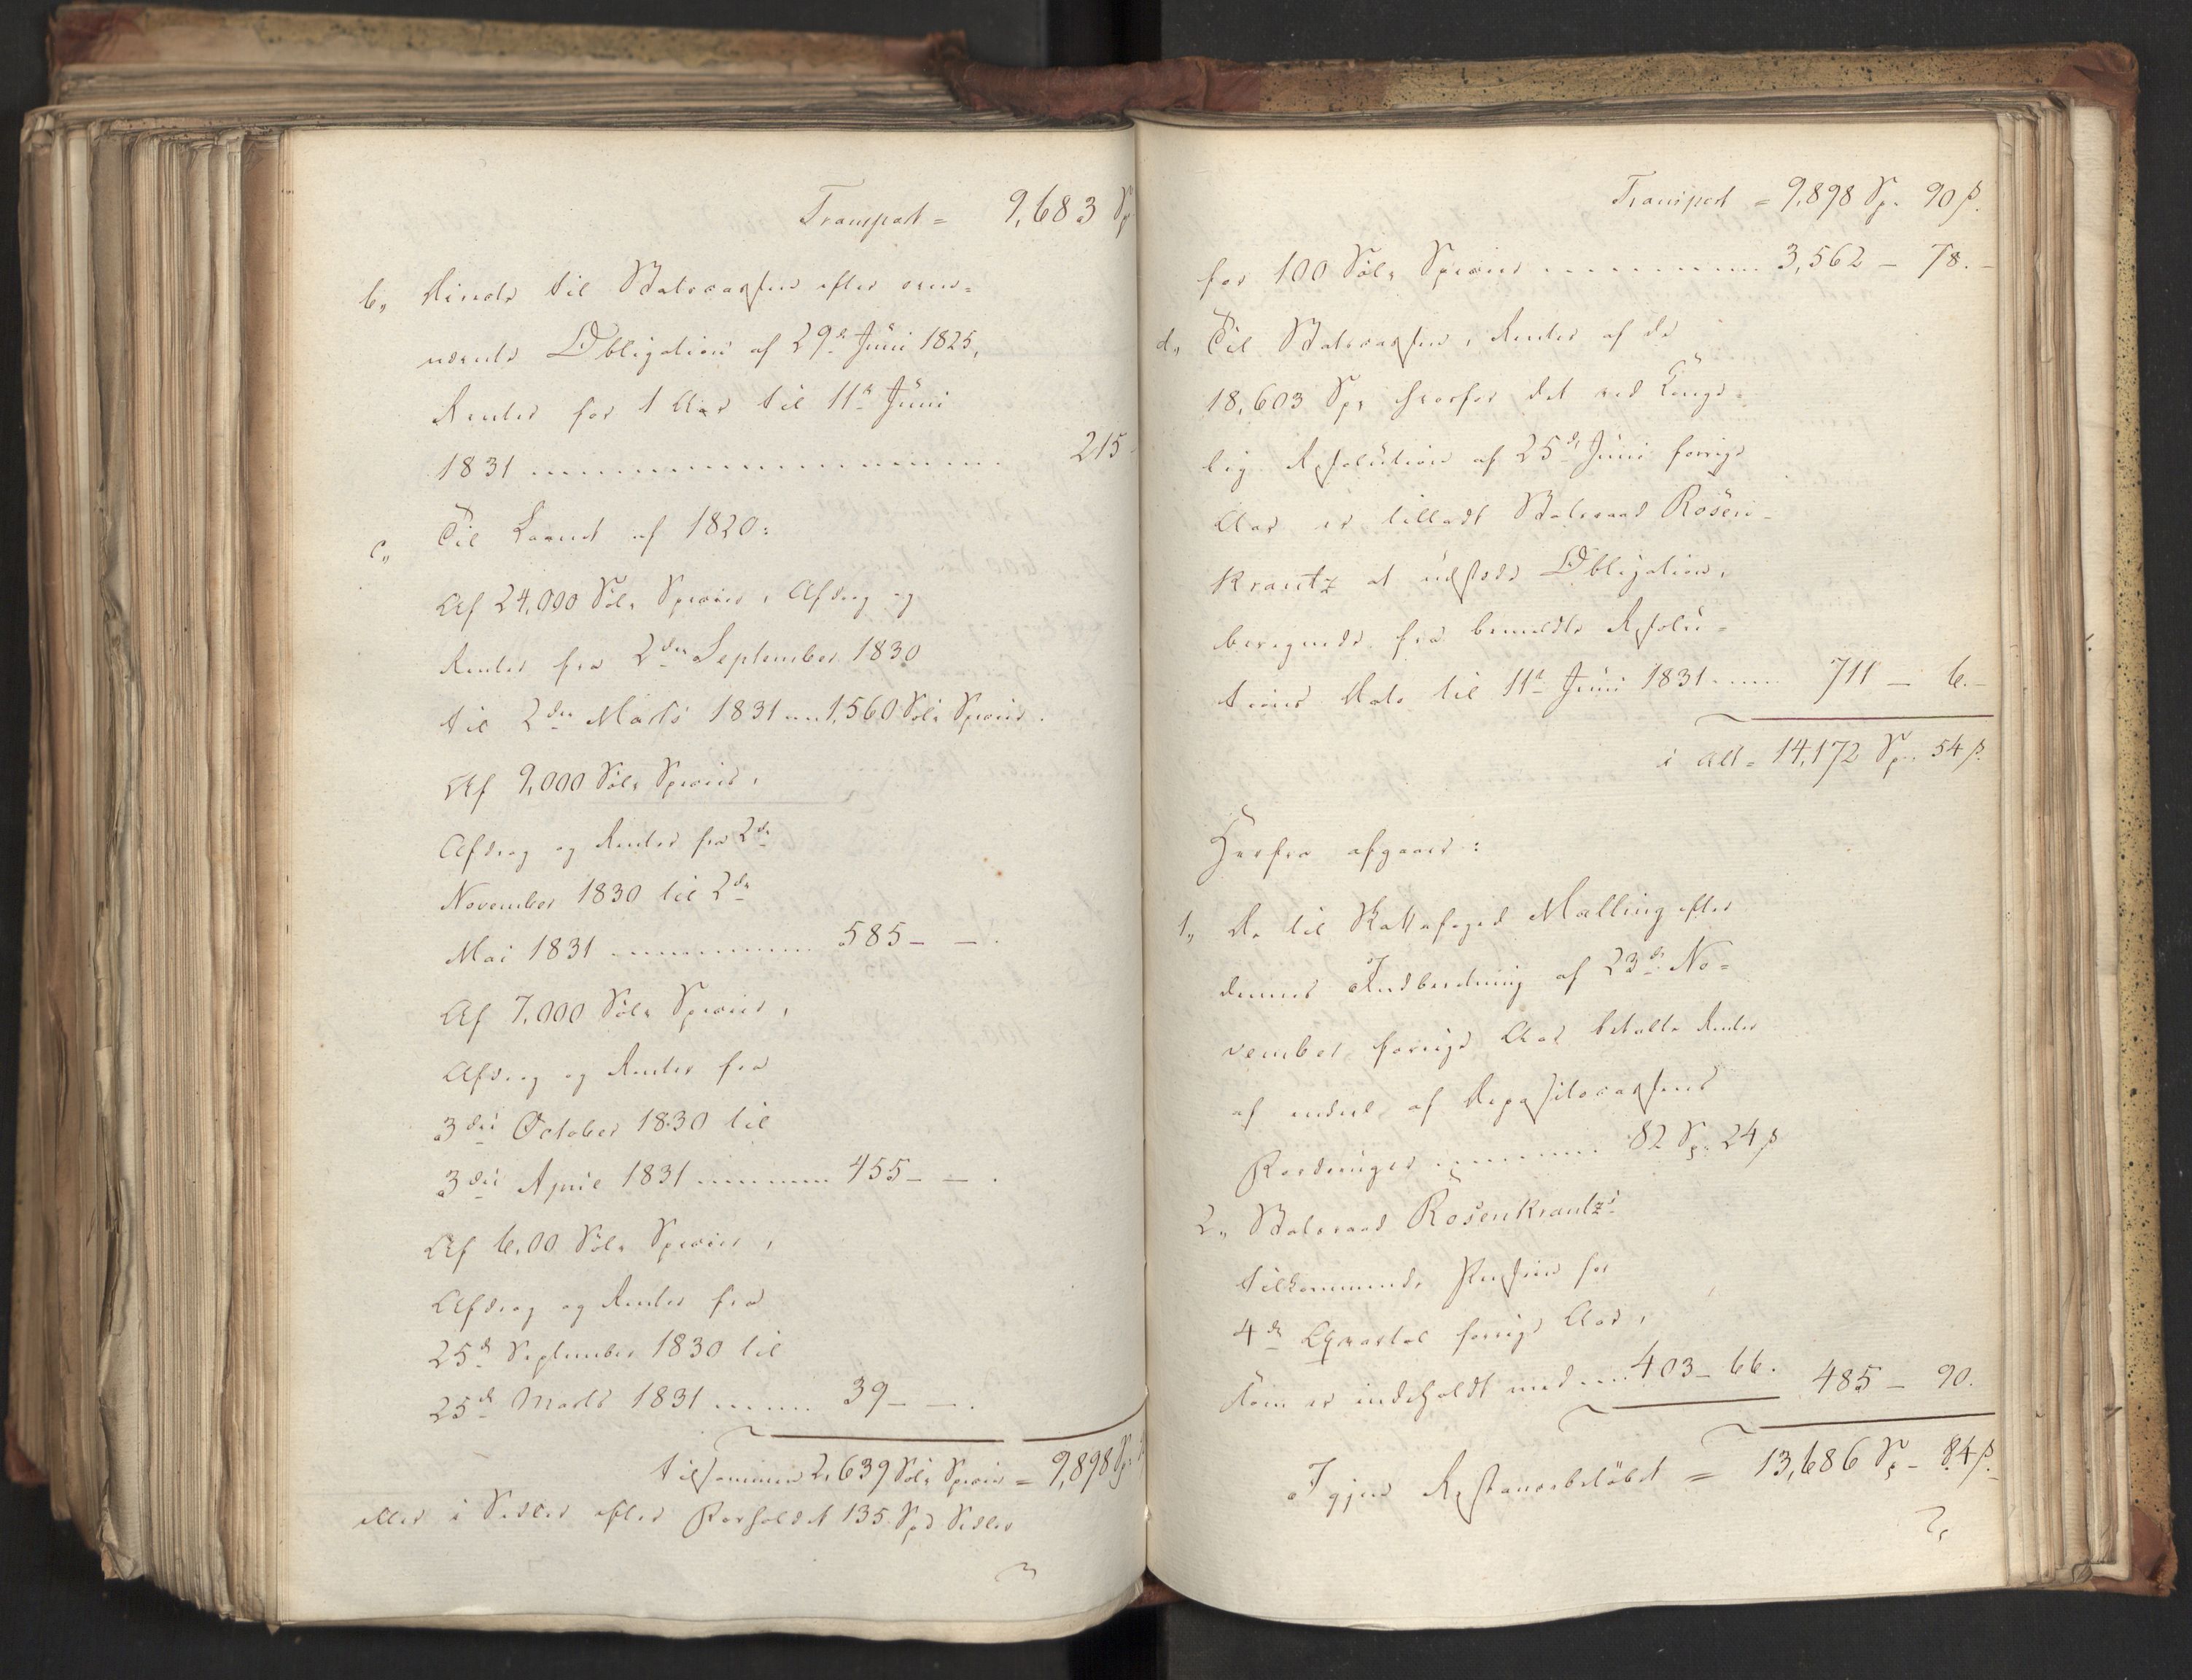 Transport = 9,683 Sp
b,, til Statscassen efter oven=
nævnte Obligation af 29de Juni 1825,
Renter for 1 Aar til 11te Juni
1831 ........ 215
c,, Til Laanet af 1820:
Af 24,000 Sølv Species, Afdrag og
Renter fra 2den September 1830
til 2den Marts 1831 ... 1,560 Sølv Species.
Af 9,000 Sølv Species,
Afdrag og Renter fra 2de
November 1830 til 2de
Mai 1831 ........ 585 - - .
Af 7,000 Sølv Species,
Afdrag og Renter fra
3die October 1830 til
3die April 1831 ........ 455 - - .
Af 6,00 Sølv Species,
Afdrag og Renter fra
25de September 1830 til
25de Marts 1831 ...... 39 - - .
tilsammen 2,639 Sølv Species = 9,898 Sp.
eller i Sedler efter Forholdet 135 Spd Sedler
Transport = 9,898 Sp. 90 ß.
for 100 Sølv Species ........ 3,562 - 78. -
d,, Til Statscassen, Renter af de
18,603 Sp, hvorfor det ved Konge=
lig Resolution af 25de Juni forrige
Aar er tilladt Statsraad Rosen=
krantz at udstede Obligation,
beregnede fra bemeldte Resolu=
tions Dato til 11te Juni 1831 ..... 711 - 6. -
i Alt = 14,172 Sp. 54 ß.
Herfra afgaaer:
1,, De til Malling efter
dennes Indberetning af 23de No=
vember forrige Aar betalte Renter
af endeel af Depositocassens
Fordringer ........ 82 Sp. 24 ß
2,, Statsraad Rosenkrantz's
tilkommende Pension for
4de Qvartal forrige Aar,
som er indeholdt med .... 403 - 66. 485 - 90.
Igjen Restancebeløbet = 13,686 Sp - 84 ß. -